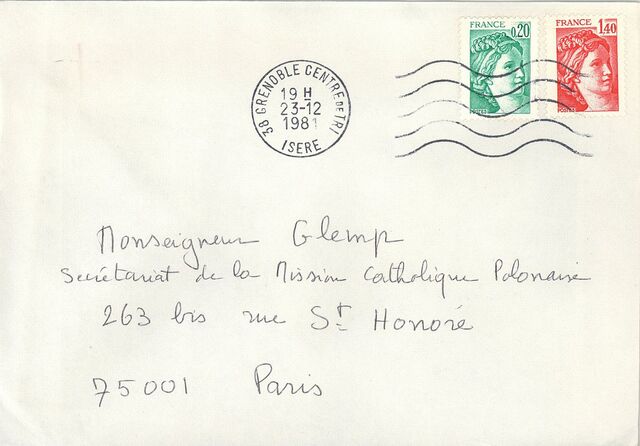 FRANCE 0,20
POSTES
FRANCE 1,40
POSTES
38 GRENOBLE CENTRE DE TRI
19 H
23-12
1981
ISERE
Monseigneur Glemp
Secrétariat de la Mission Catholique Polonaise
263 bis rue St Honoré
75001 Paris